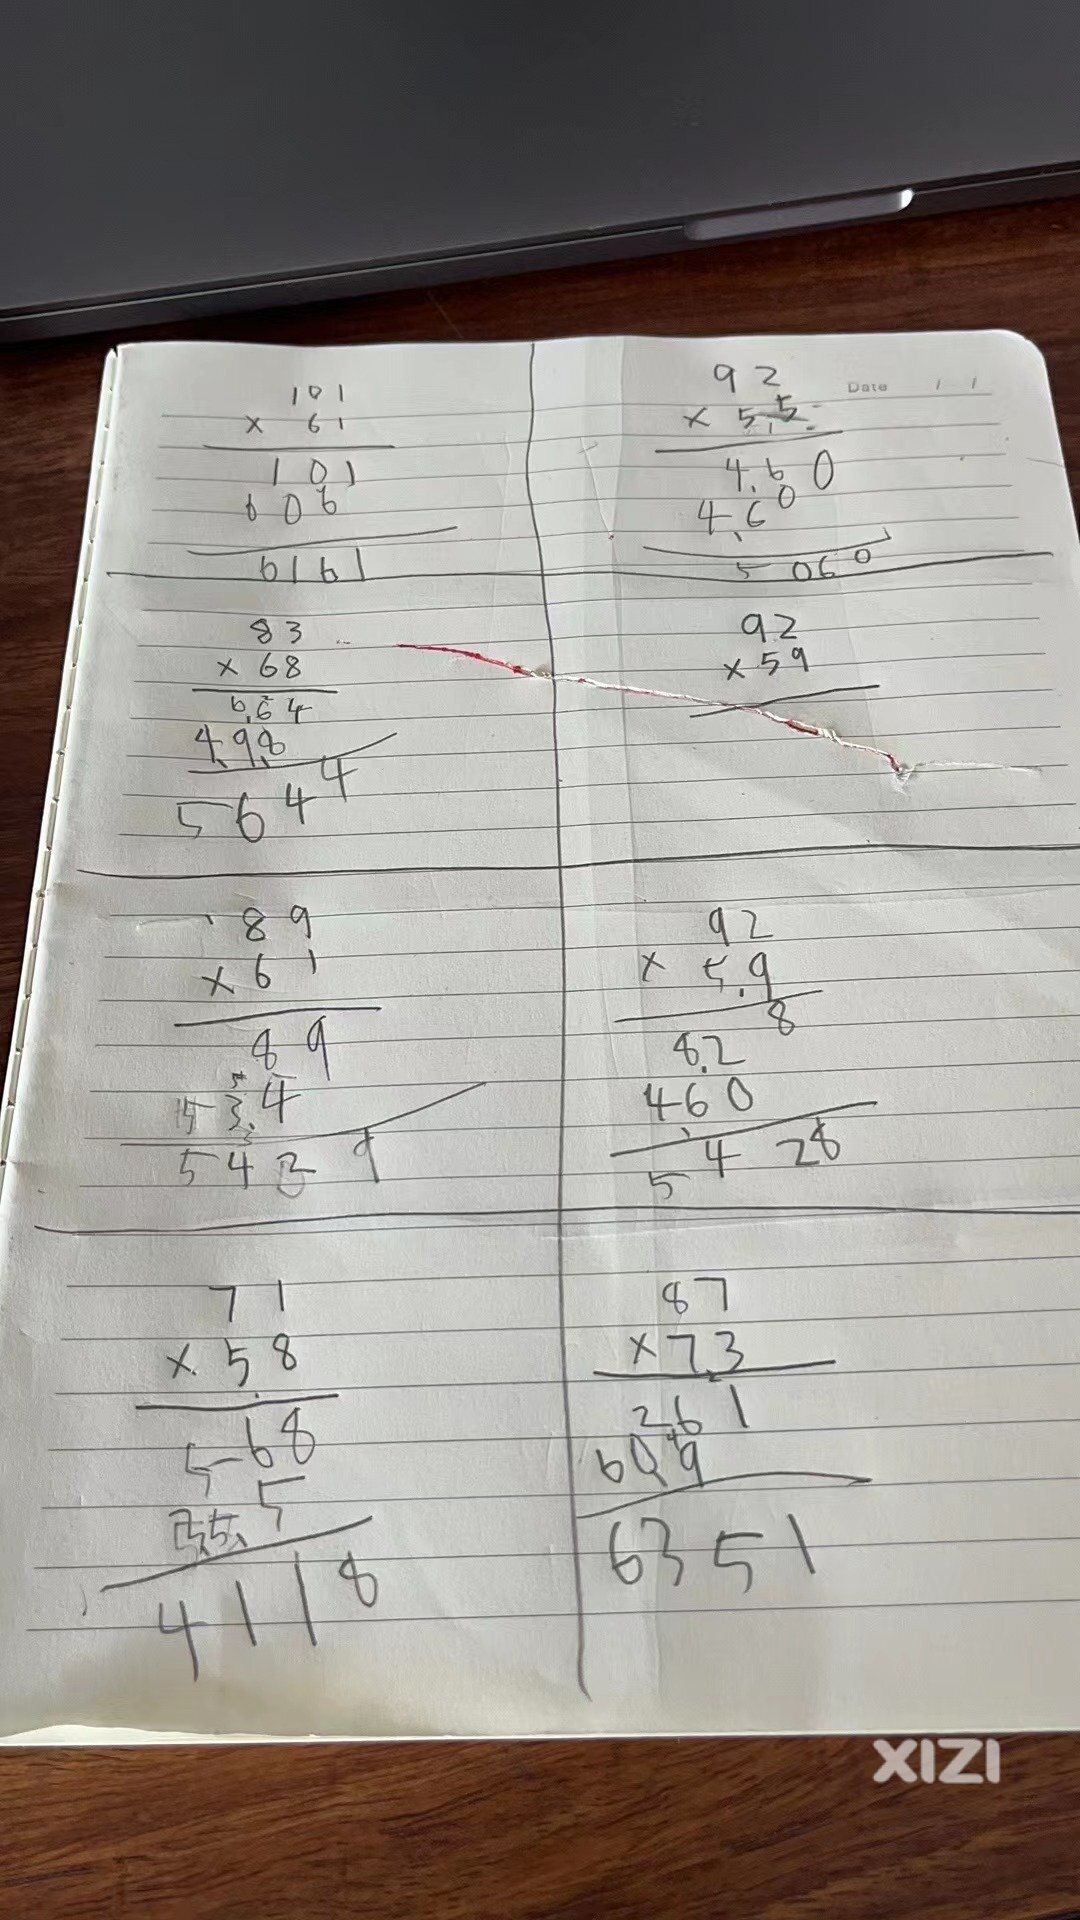 101
× 61
101
606
6161
Date / /
92
× 55
460
460
5060
83
× 68
664
498
5644
92
× 59
89
× 61
89
534
5429
92
× 59
8
82
460
5428
71
× 58
568
355
4118
87
× 73
261
609
6351
XIZI